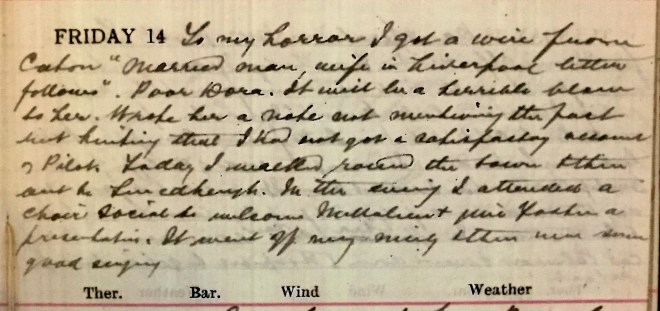 FRIDAY 14 To my horror I got a wire from
Caton "Married man, wife in Liverpool letter
follows". Poor Dora. It will be a terrible blow
to her. Wrote her a note not mentioning the fact
but hinting that I had not got a satisfactory account
of Pilot. Today I walked round the town & then
out to. In the evening I attended a
Choir Social to welcome & give Foster a
presentation. It went off very nicely & there was some
good singing
Ther. Bar. Wind Weather